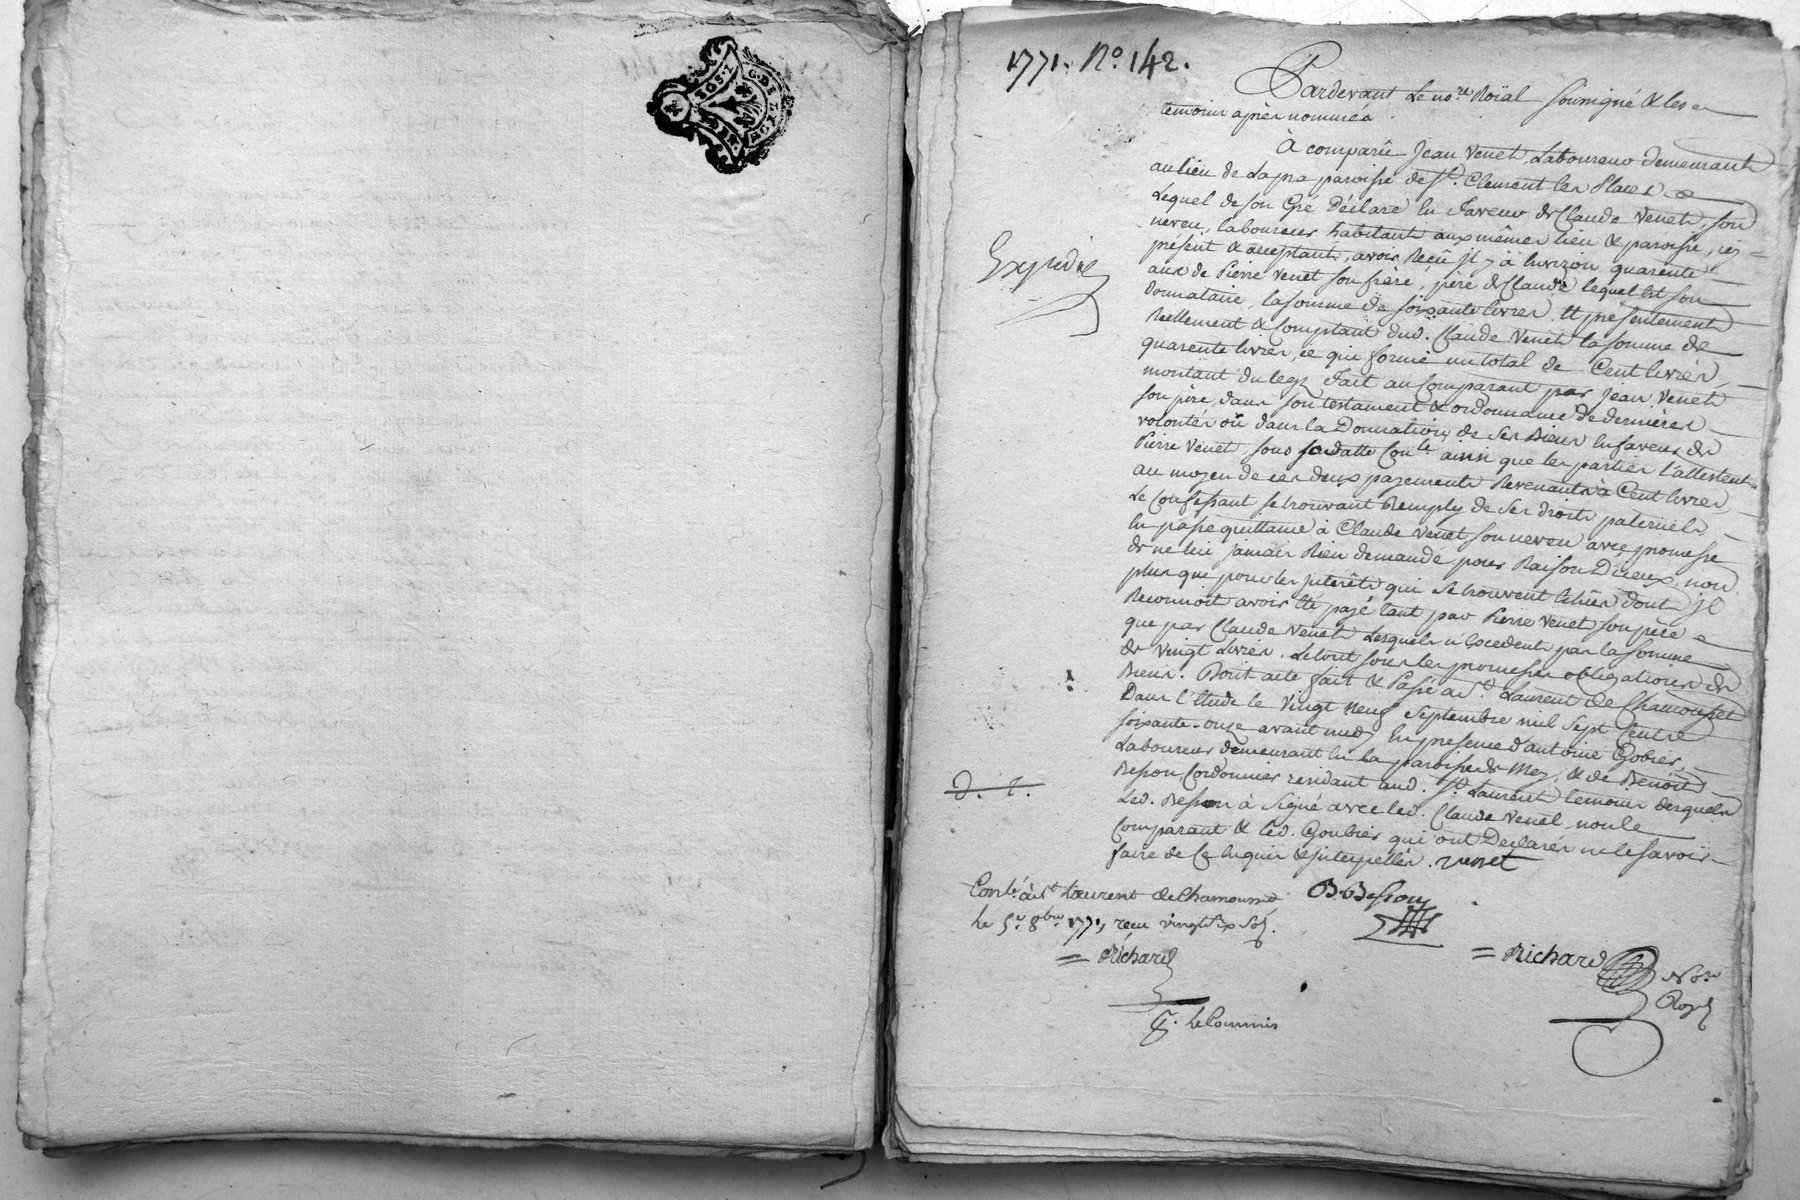 1771. No. 142.
Pardevant Le nore. Roïal soussigné & les
temoins après nommés
À comparû Jean Venet, Laboureur demeurant
au lieu de Lapra paroisse de St. Clement les Places
Lequel de son Gré Déclare En faveur de Claude Venet, son
neveu, laboureur habitant aux mêmes lieu & paroisse, icy
présent & acceptant, avoir Reçu jl y à Environ quarente
ans de Pierre Venet son frère, père de Claude lequel Est son
Donnataire, la somme de soixante livres, Et présentement
Reellement & Comptant dud. Claude Venet la somme de
quarente livres, ce qui forme un total de Cent livres,
montant du legs fait au Comparant par Jean Venet
son père, dans son testament & ordonnance de dernières
volontés où dans la Donnation de Ses Biens En faveur de
Pierre Venet, sous sa datte Conlé. ainsi que les parties l'attestent
au moyen de ces deux payements Revenants à Cent livres,
Le Confessant se trouvant Remply de Ses droits paternels,
En passe quittance à Claude Venet son neveu avec promesse
de ne lui jamais Rien demandé pour Raison D'iceux, non
plus que pour les Jnterêts qui se trouvent Echus dont jl
Reconnoit avoir Eté payé tant par Pierre Venet son père
que par Claude Venet Lesquels n'Excedent pas la somme
de Vingt Livres. Le tout sous les promesses obligations de
Biens. Dont acte fait & Passé a St. Laurent de Chamousset
Dans l'Etude le Vingt Neuf Septembre mil Sept Cent
soixante-onze avant midy En presence d'antoine Gobier,
Laboureur demeurant En la paroisse de Mey, & de Benoit
Besson, Cordonnier residant aud. St. Laurent temoins desquels
Led. Besson à Signé avec led. Claude Venet, non le
Comparant & led. Goubier qui ont Déclarés ne le savoir
faire de Ce Enquis & jnterpellés. venet
Expedié
d. t.
Conlé. à St. Laurent de Chamousset
le 5e. 8bre. 1771, reçu vingt six sols.
= Richard
Le Commis
B. Besson
= Richard
Nore
Royl